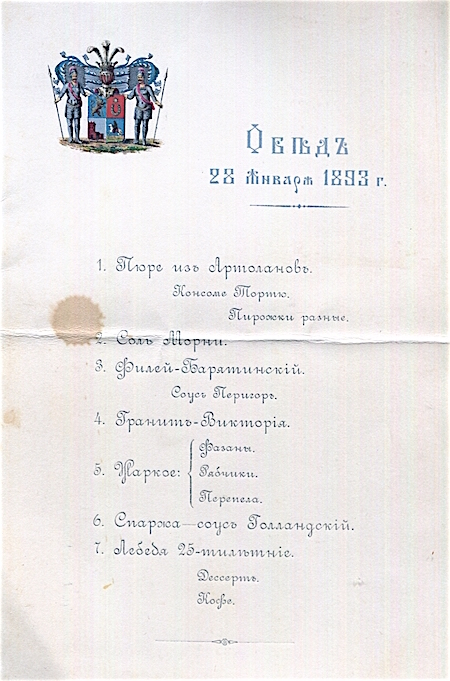 Обѣдъ
28 Января 1893 г.
1. Пюре изъ Артолановъ.
Консоме Тортю.
Пирожки разные.
2. Соль Морни.
3. Филей-Барятинскій.
Соусъ Перигоръ.
4. Гранитъ-Викторія.
5. Жаркое:
Фазаны.
Рябчики.
Перепела.
6. Спаржа—соусъ Голландскій.
7. Лебедя 25-тилѣтніе.
Дессертъ.
Кофе.